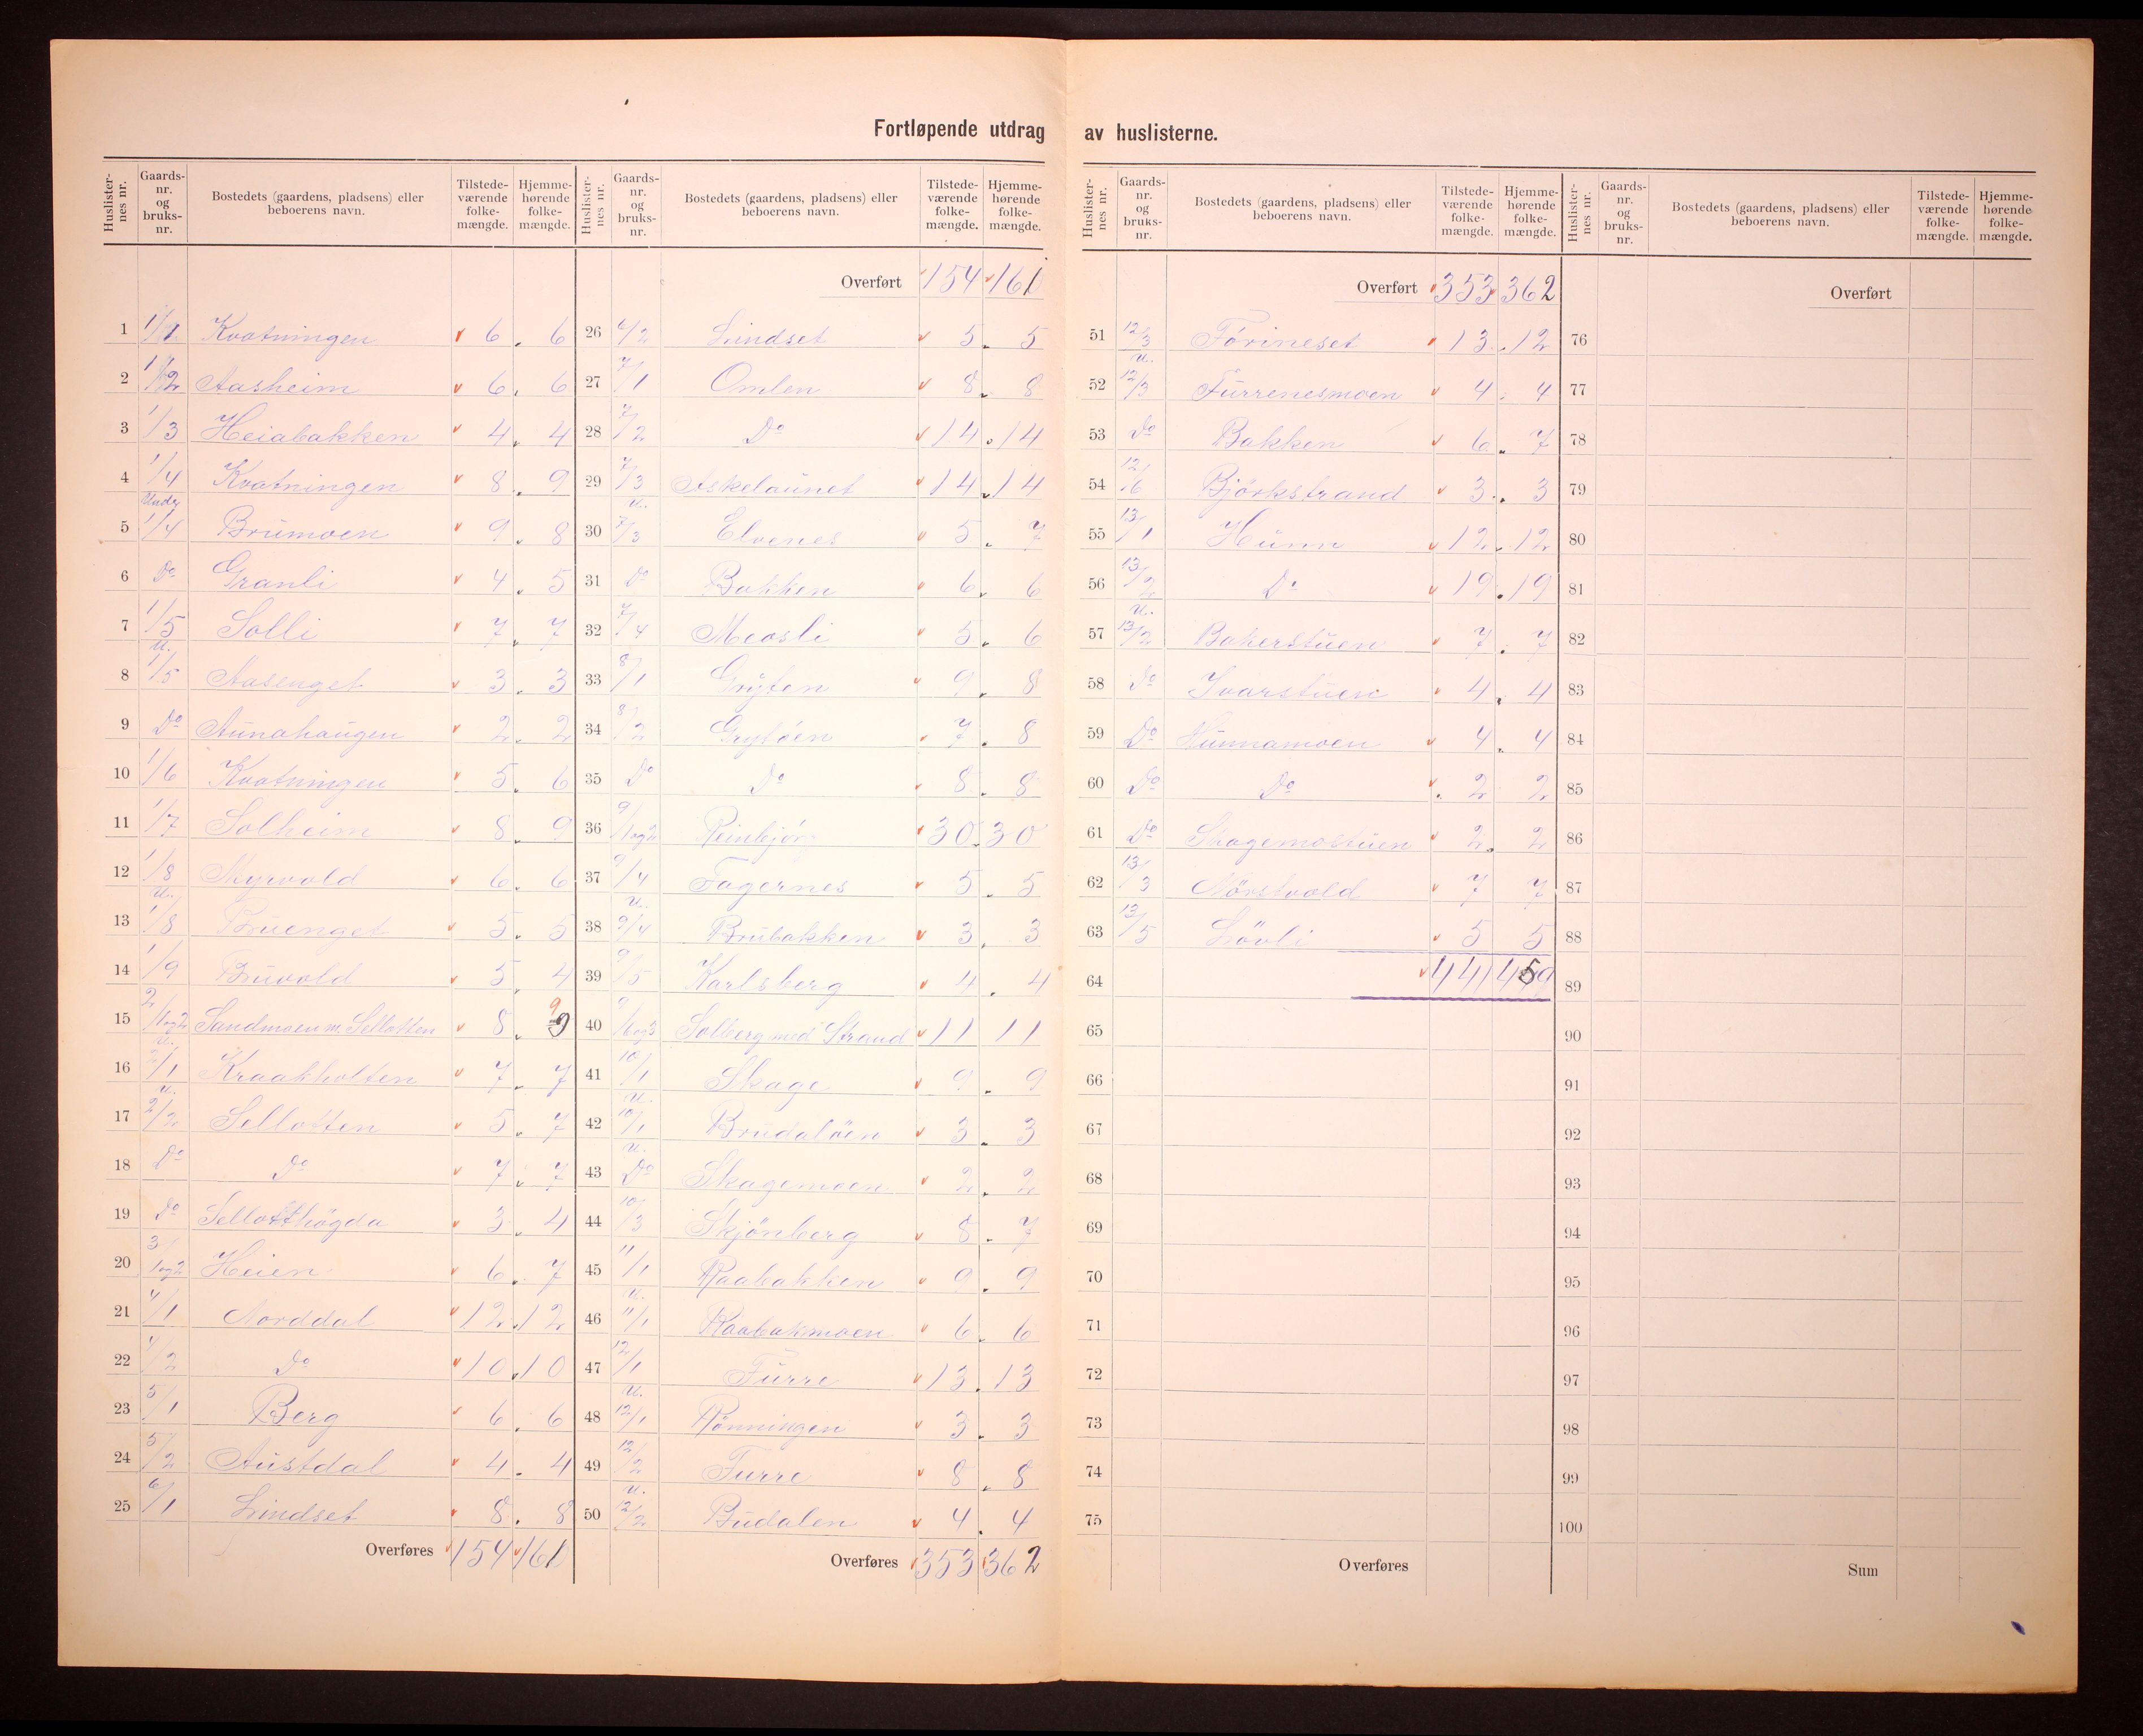 Fortløpende utdrag av huslisterne.
Huslisternes nr. Gaardsnr. og bruksnr. Bostedets (gaardens, pladsens) eller beboerens navn. Tilstedeværende folkemængde. Hjemmehørende folkemængde.
1 1/1 Kvatningen 6 6
2 1/2 Aasheim 6 6
3 1/3 Heiabakken 4 4
4 1/4 Kvatningen 8 9
5 Under 1/4 Brumoen 9 8
6 Do Granli 4 5
7 1/5 Solli 7 7
8 U. 1/5 Aasenget 3 3
9 Do Aunahaugen 2 2
10 1/6 Kvatningen 5 6
11 1/7 Solheim 8 9
12 1/8 Myrvold 6 6
13 U. 1/8 Bruenget 5 5
14 1/9 Bruvold 5 4
15 2/1og2 Sandmoen m. Sellotten 8 9
16 U. 2/1 Kraakholten 7 7
17 U. 2/2 Sellotten 5 7
18 Do Do 7 7
19 Do Sellotthögda 3 4
20 3/1og2 Heien 6 7
21 4/1 Norddal 12 12
22 4/2 Do 10 10
23 5/1 Berg 6 6
24 5/2 Austdal 4 4
25 6/1 Lindset 8 8
Overføres 154 161
Huslisternes nr. Gaardsnr. og bruksnr. Bostedets (gaardens, pladsens) eller beboerens navn. Tilstedeværende folkemængde. Hjemmehørende folkemængde.
Overført 154 161
26 6/2 Lindset 5 5
27 7/1 Omlen 8 8
28 7/2 Do 14 14
29 7/3 Askelaunet 14 14
30 U. 7/3 Elvenes 5 7
31 Do Bakken 6 6
32 7/4 Meosli 5 6
33 8/1 Gryten 9 8
34 8/2 Grytöen 7 8
35 Do Do 8 8
36 9/1og2 Reinbjör 30 30
37 9/4 Fagernes 5 5
38 U. 9/4 Brubakken 3 3
39 9/5 Karlsberg 4 4
40 9/6og3 Solberg med Strand 11 11
41 10/1 Skage 9 9
42 U. 10/1 Brudalöen 3 3
43 U. Do Skagemoen 2 2
44 10/3 Skjönberg 8 7
45 11/1 Raabakken 9 9
46 U. 11/1 Raabakmoen 6 6
47 12/1 Furre 13 13
48 U. 12/1 Rönningen 3 3
49 12/2 Furre 8 8
50 U. 12/2 Budalen 4 4
Overføres 353 362
Huslisternes nr. Gaardsnr. og bruksnr. Bostedets (gaardens, pladsens) eller beboerens navn. Tilstedeværende folkemængde. Hjemmehørende folkemængde.
Overført 353 362
51 12/3 Förineset 13 12
52 U. 12/3 Furrenesmoen 4 4
53 Do Bakken 6 7
54 12/6 Björkstrand 3 3
55 13/1 Hunn 12 12
56 13/2 Do 19 19
57 U. 13/2 Bakerstuen 7 7
58 Do Ivarstuen 4 4
59 Do Hunnamoen 4 4
60 Do Do 2 2
61 Do Skagemostuen 2 2
62 13/3 Nörstvold 7 7
63 13/5 Lövli 5 5
64 441 450
65
66
67
68
69
70
71
72
73
74
75
Overføres
Huslisternes nr. Gaardsnr. og bruksnr. Bostedets (gaardens, pladsens) eller beboerens navn. Tilstedeværende folkemængde. Hjemmehørende folkemængde.
Overført
76
77
78
79
80
81
82
83
84
85
86
87
88
89
90
91
92
93
94
95
96
97
98
99
100
Sum